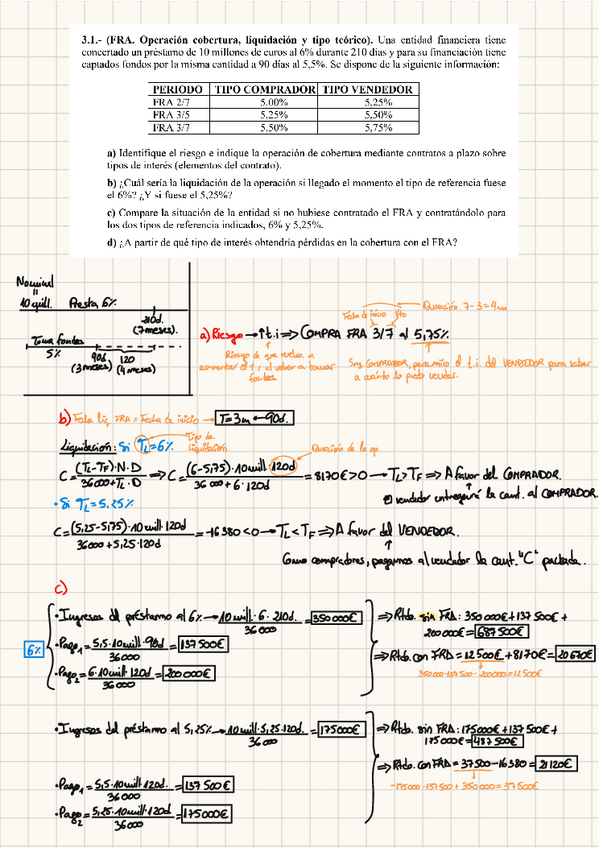 3.1.- (FRA. Operación cobertura, liquidación y tipo teórico). Una entidad financiera tiene
concertado un préstamo de 10 millones de euros al 6% durante 210 días y para su financiación tiene
captados fondos por la misma cantidad a 90 días al 5,5%. Se dispone de la siguiente información:
PERIODO TIPO COMPRADOR TIPO VENDEDOR
FRA 2/7 5,00% 5,25%
FRA 3/5 5,25% 5,50%
FRA 3/7 5,50% 5,75%
a) Identifique el riesgo e indique la operación de cobertura mediante contratos a plazo sobre
tipos de interés (elementos del contrato).
b) ¿Cuál sería la liquidación de la operación si llegado el momento el tipo de referencia fuese
el 6%? ¿Y si fuese el 5,25%?
c) Compare la situación de la entidad si no hubiese contratado el FRA y contratándolo para
los dos tipos de referencia indicados, 6% y 5,25%.
d) ¿A partir de qué tipo de interés obtendría pérdidas en la cobertura con el FRA?
Nominal
=
10 mill. Presta 6%
210d.
(7 meses).
Toma fondos
5%
90d 120
(3 meses) (4 meses)
Fecha de inicio Vto Duración 7-3=4m
a) Riesgo → ↑t.i ⇒ COMPRA FRA 3/7 al 5,75%
Riesgo de que vuelva a
aumentar el t.i al volver a tomar
fondos.
Soy COMPRADOR, pero miro el t.i. del VENDEDOR para saber
a cuánto lo vender.
b) Fecha liq FRA = Fecha de inicio → T=3m → 90d.
Tipo de
liquidación.
Liquidación: Si TL=6% Duración de la op
C = (TL-TF)·N·D / 36000+TL·D ⇒ C = (6-5,75)·10 mill·120d / 36000+6·120d = 8170€ > 0 → TL > TF ⇒ A favor del COMPRADOR.
El vendedor entregará la cant. al COMPRADOR.
• Si TL=5,25%
C = (5,25-5,75)·10 mill·120d / 36000+5,25·120d = -16380 < 0 → TL < TF ⇒ A favor del VENDEDOR.
Como compradores, pagamos al vendedor la cant. "C" pactada.
c)
6%
• Ingresos del préstamo al 6% → 10 mill·6·210d / 36000 = 350000€
• Pago1 = 5,5·10 mill·90d / 36000 = 137500€
• Pago2 = 6·10 mill·120d / 36000 = 200000€
⇒ Rtdo. sin FRA: 350000€ + 137500€ +
200000€ = 687500€
⇒ Rtdo. con FRA = 12500€ + 8170€ = 20670€
350000-137500-200000 = 12500€
• Ingresos del préstamo al 5,25% → 10 mill·5,25·120d / 36000 = 175000€
• Pago1 = 5,5·10 mill·120d. / 36000 = 137500€
• Pago2 = 5,25·10 mill·120d / 36000 = 175000€
⇒ Rtdo. sin FRA: 175000€ + 137500€ +
175000€ = 487500€
⇒ Rtdo. con FRA = 37500 - 16380 = 21120€
-175000-137500+350000 = 37500€